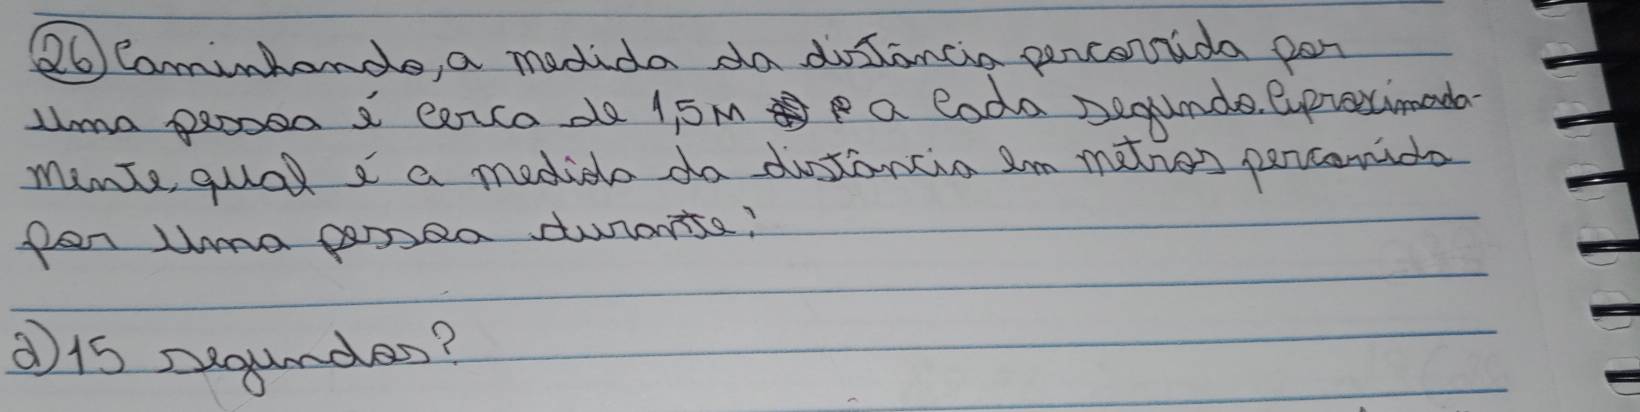 26) Caminhando, a medida da distância percorrida por
uma pessoa é cerca de 1,5M a cada segundo. Aproximada-
mente, qual é a medida da distância em metros percorrida
por uma pessoa durante:
a) 15 segundos?